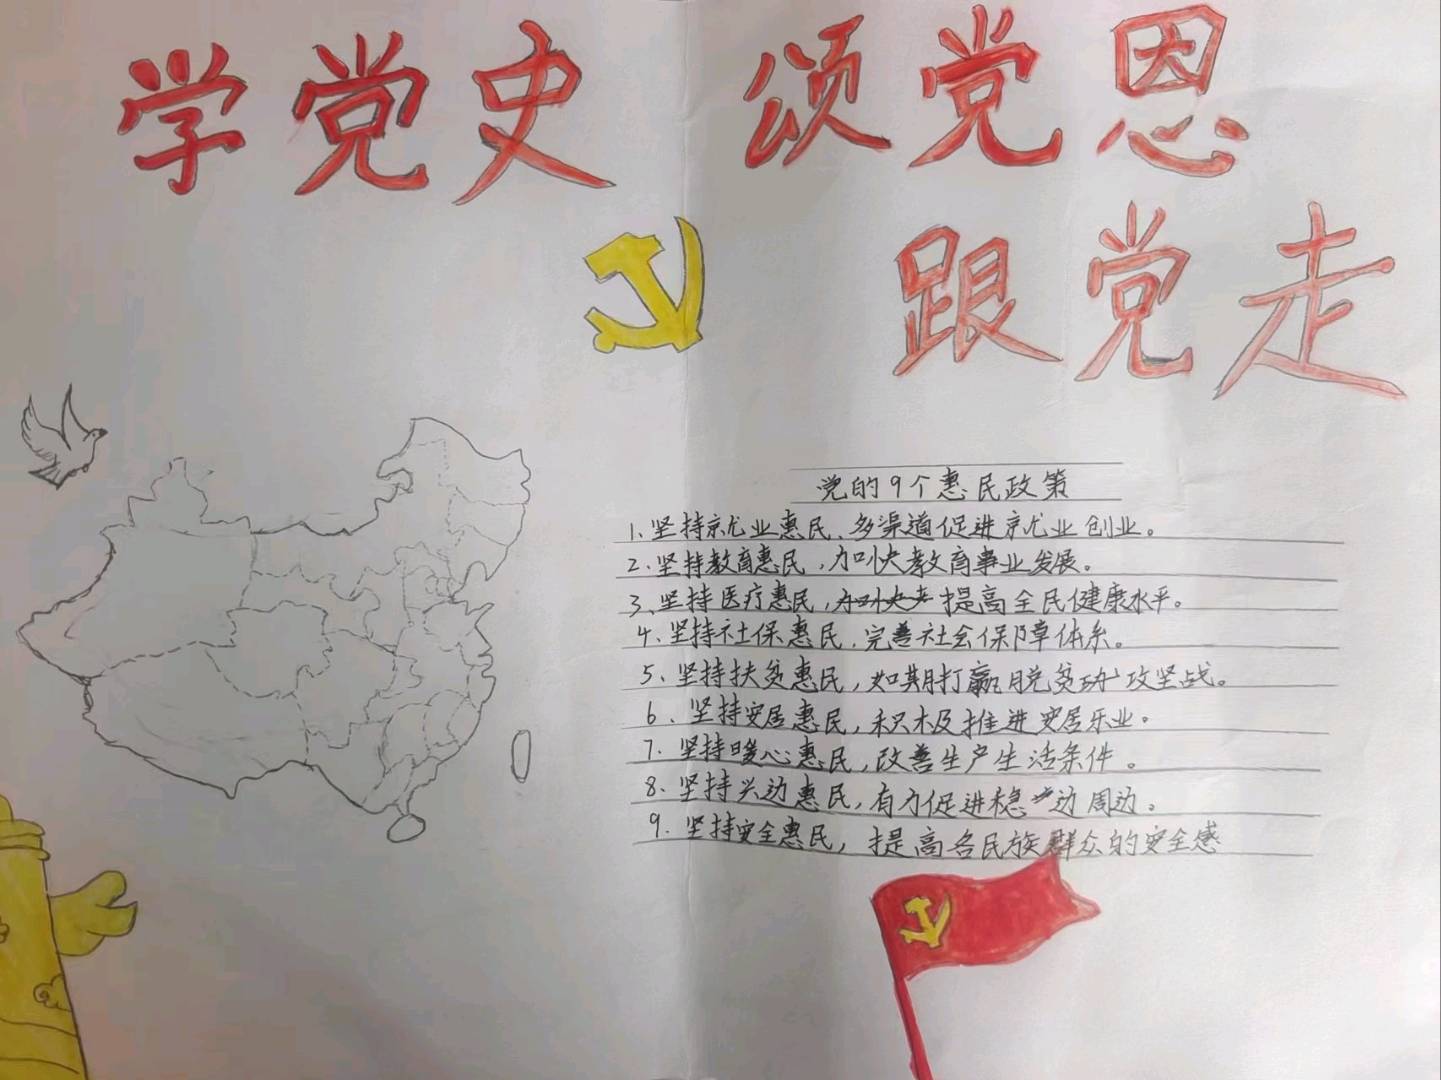 学党史 颂党恩
跟党走
党的9个惠民政策
1.坚持就业惠民、多渠道促进就业创业。
2.坚持教育惠民，加快教育事业发展。
3、坚持医疗惠民，提高全民健康水平。
4、坚持社保惠民，完善社会保障体系。
5、坚持扶贫惠民，如期打赢脱贫攻坚战。
6、坚持安居惠民，积极推进安居乐业。
7、坚持暖心惠民，改善生产生活条件。
8、坚持兴边惠民，有力促进稳边周边。
9、坚持安全惠民，提高各民族群众的安全感